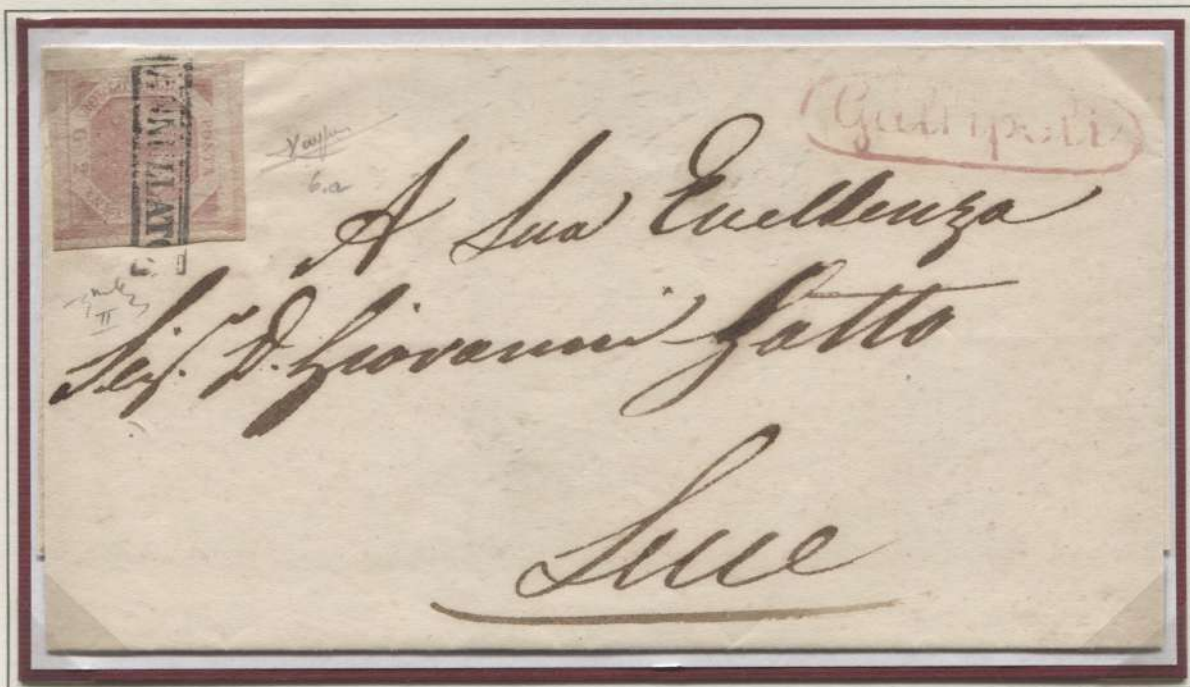 ANNULLATO
POSTA
Gallipoli
A Sua Eccellenza
Sig. D. Giovanni Gatto
Lecce
6.a
II